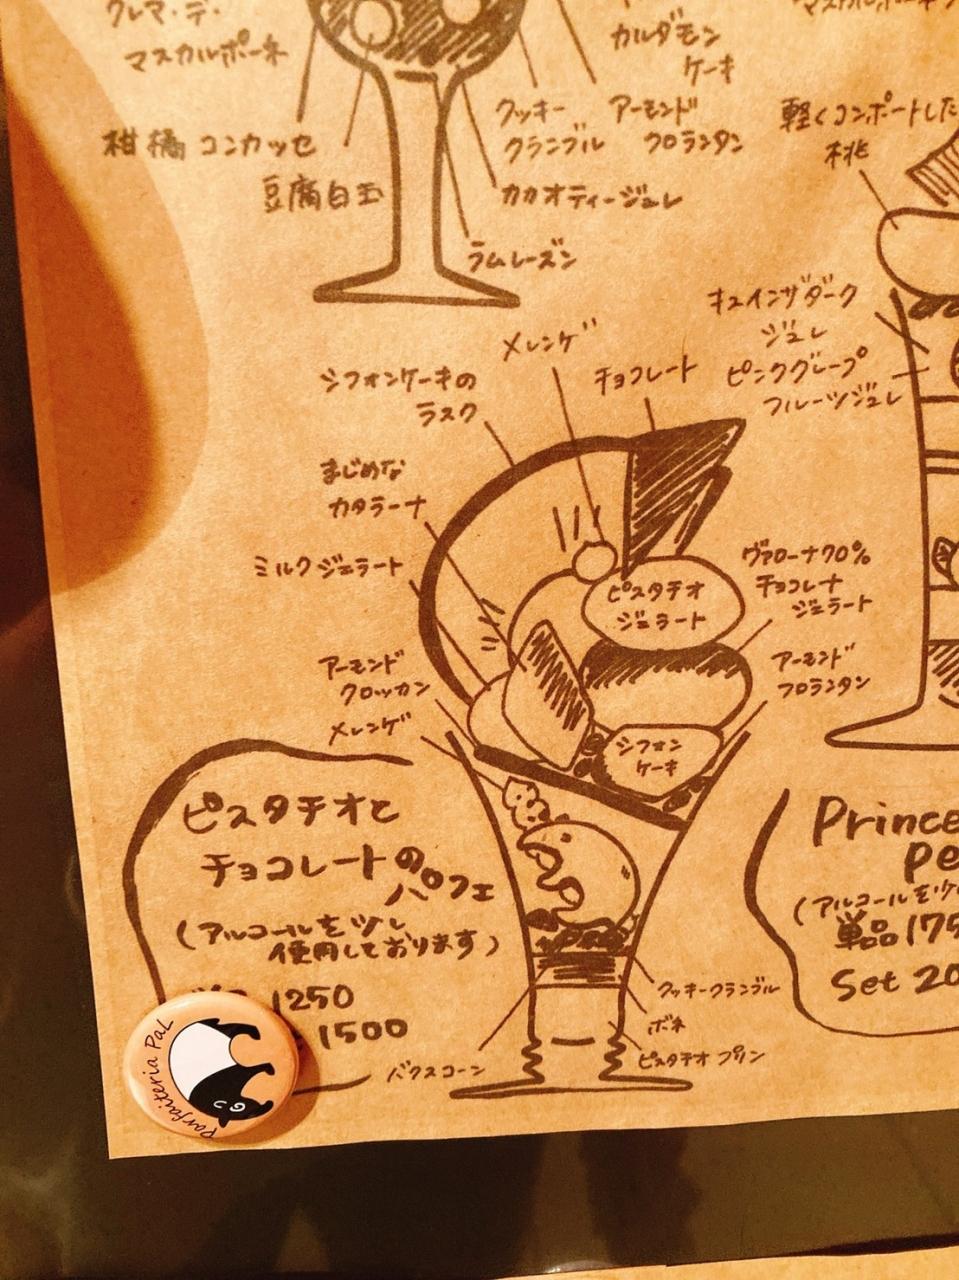 クレマ・デ・
マスカルポーネ
柑橘 コンカッセ
豆腐白玉
カルダモン
ケーキ
クッキー
クランブル
アーモンド
フロランタン
カカオティージュレ
ラムレーズン
軽くコンポートした
桃
キュインザダーク
ジュレ
ピンクグレープ
フルーツジュレ
メレンゲ
チョコレート
シフォンケーキの
ラスク
まじめな
カタラーナ
ミルクジェラート
ピスタチオ
ジェラート
ヴァローナ70%
チョコレート
ジェラート
アーモンド
クロッカン
メレンゲ
アーモンド
フロランタン
シフォン
ケーキ
ピスタチオと
チョコレートの
パフェ
(アルコールを少し
使用しております)
1250
1500
クッキークランブル
ボネ
ピスタチオプリン
バクスコーン
Prince
Pe
(アルコールを少
単品175
Set 20
Parfaiteria PaL